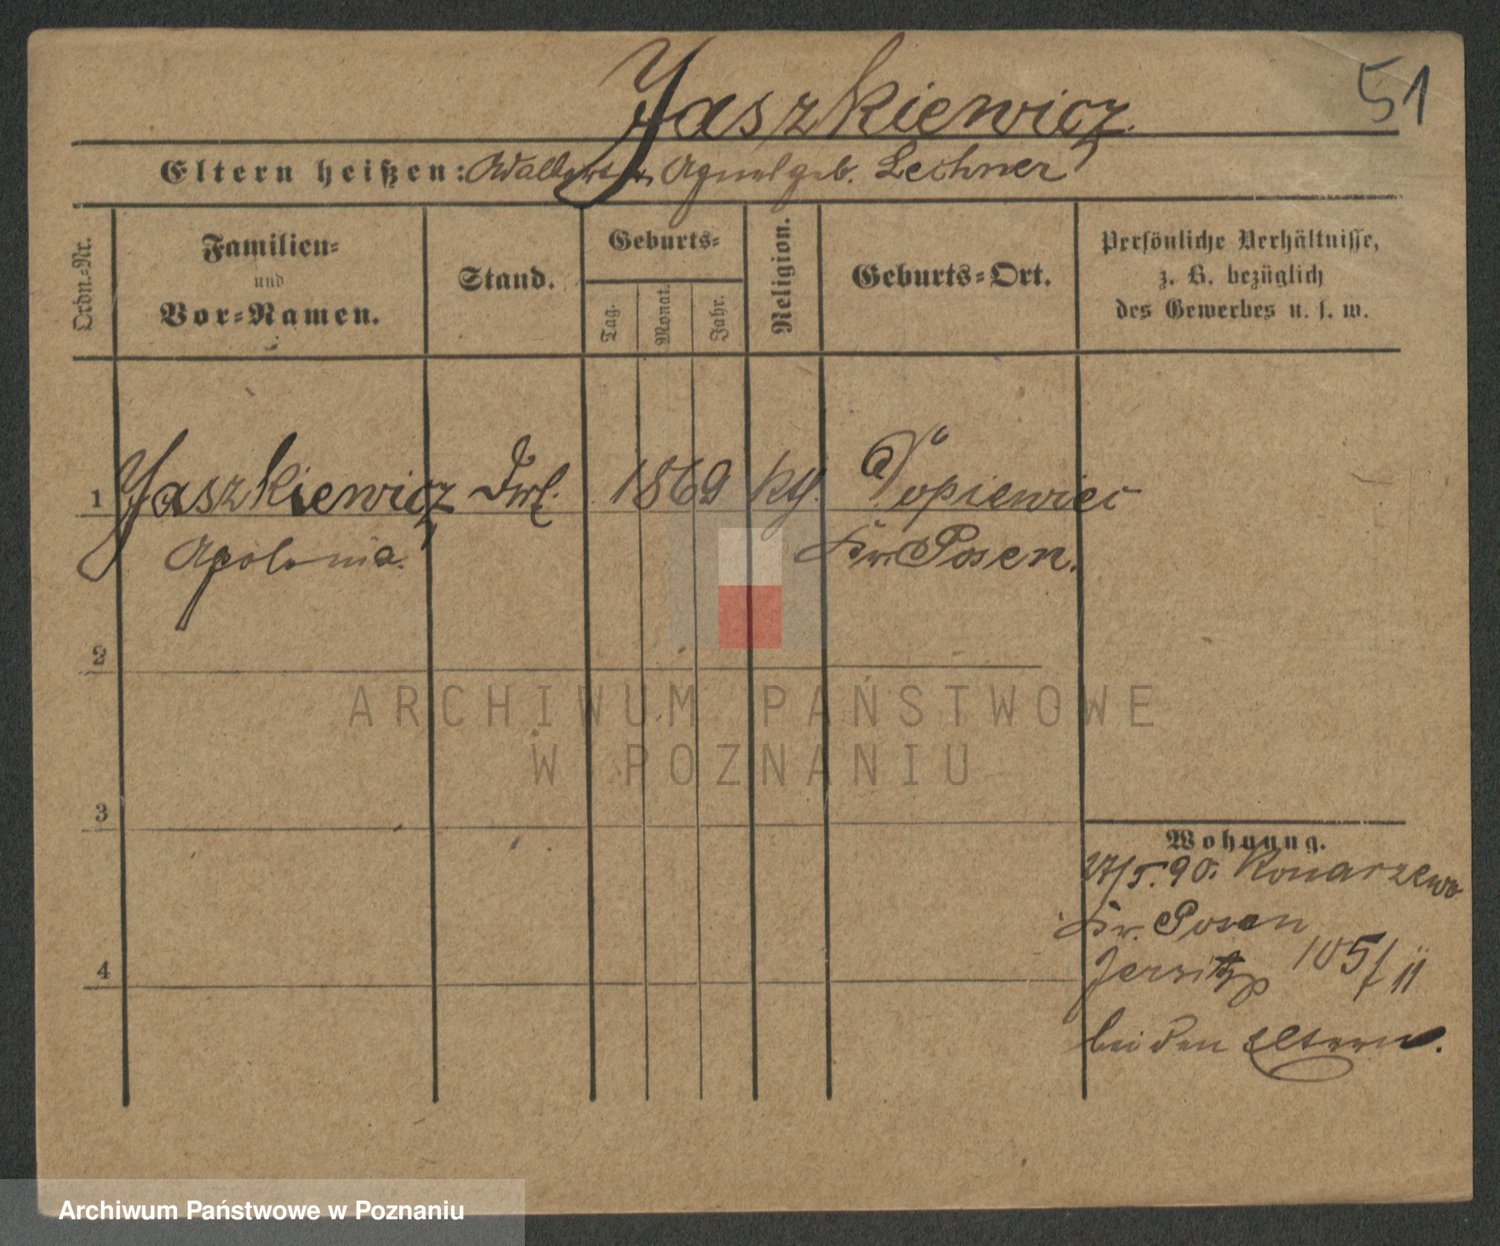 Jaszkiewicz
51
Eltern heißen: Adalbert u. Agnes geb. Lechner
Ordn.-Nr.
Familien-
und
Vor-Namen.
Stand.
Geburts-
Tag.
Monat.
Jahr.
Religion.
Geburts-Ort.
Persönliche Verhältnisse,
z. B. bezüglich
des Gewerbes u. s. w.
1 Jaszkiewicz Frl. 1869 Dopiewiec
Apolonia. Kr. Posen.
2
3
4
Wohnung.
5.90. Konarzewo
Kr. Posen
Jersitz 105/II
bei den Eltern.
ARCHIWUM PAŃSTWOWE
W POZNANIU
Archiwum Państwowe w Poznaniu